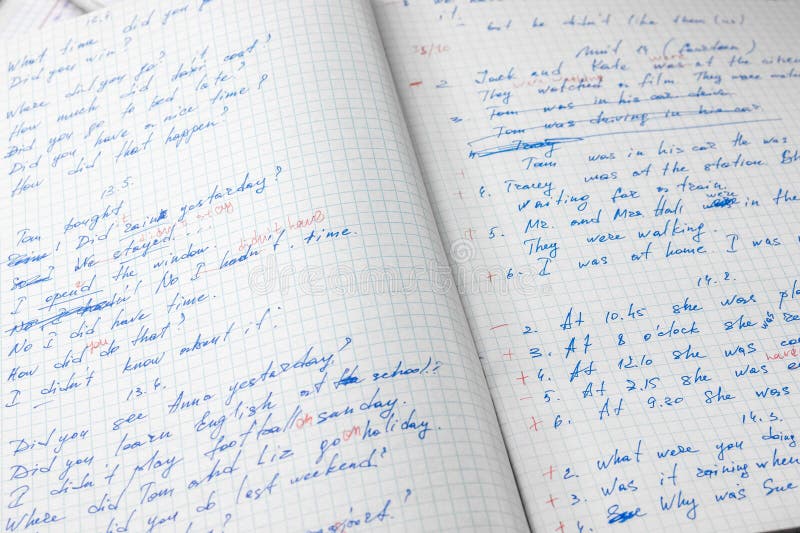 What time did you
Did you win?
Where did you go?
How much did coat?
Did you go to bed late?
Did you have a nice time?
How did that happen?
13.5.
Tom bought
Did it rain yesterday?
We stayed...
I opend the window. didn't have
No I hadn't time.
No I did have time.
How did you do that?
I didn't know about it.
13.4.
Did you see Anna yesterday?
Did you learn English at school?
I didn't play football on sunday.
Where did Tom and Liz go on holiday.
did you do last weekend?
it. but he didn't like them (us)
35/40
unit 14
- 2. Jack and Kate were was at the
They were watching watched a film. They were
3. Tom was in his car drive
Tom was driving in his car.
Tracy
+ Tom was in his car He was
+ 4. Tracey was at the station.
waiting for a train.
+ 5. Mr. and Mrs. Hall were in the
They were walking.
+ 6. I was at home I was
14.2.
- 2. At 10.45 she was
+ 3. At 8 o'clock she
+ 4. At 12.10 she was
- 5. At 7.15 she was having
+ 6. At 9.20 she was
14.3.
+ 2. What were you doing
+ 3. Was it raining when
+ 4. Why was Sue
dreamstime